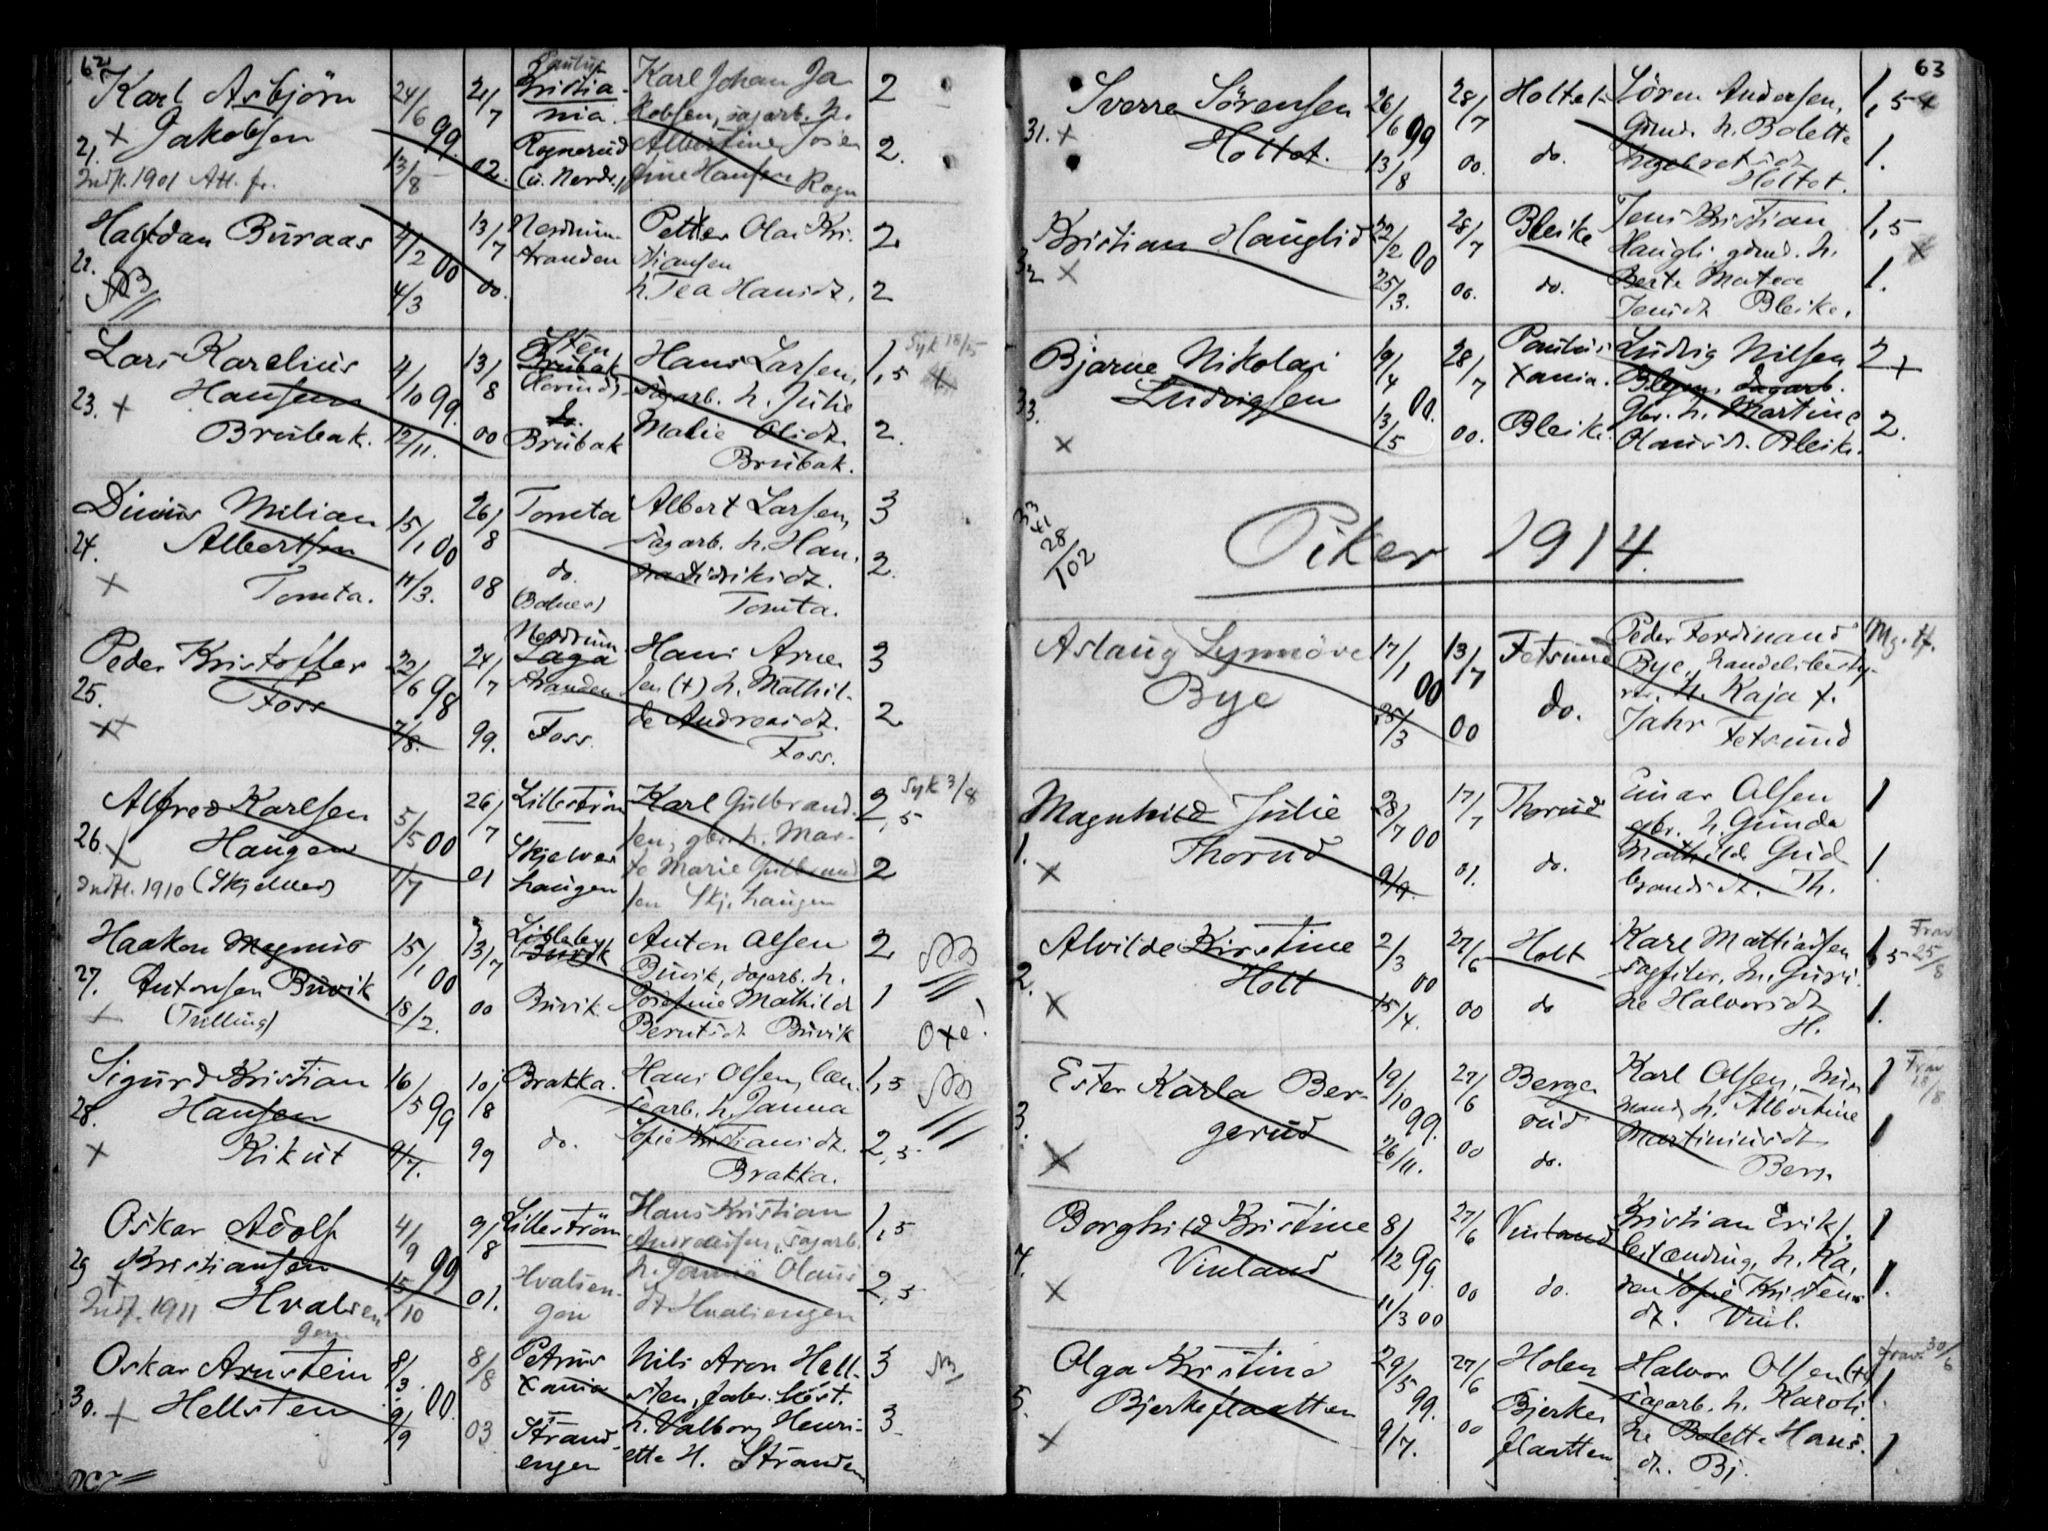 62
Karl Asbjörn
Jakobsen
21. Indfl. 1901 Att. fr.
24/6 99. 13/8
21/7 02.
Paulus Kristiania
Rognerud (u. Nordr.)
Karl Johan Jakobsen, sagarb. h.
Albertine Josefine Hansen Rogn
2 2.
Halfdan Buraas
22. NB
4/2 00 4/3
13/7 00.
Nordrum
stranden
Petter Olai Kristiansen
h. Tea Hansdt.
2 2
Lars Karelius
Hansen
23. + Brubak.
4/10 99. 12/11.
13/8 00
Sten
Brubak
do.
Brubak
Hans Larsen,
sagarb. h. Julie
Malie Olsdt.
Brubak.
1,5 2.
Syk 18/5 x
Milian
Albertsen
24. x Tomta.
15/1 00 11/3.
26/8 08
Tomta
do.
Albert Larsen,
sagarb. h. Han-
na Didriksdt.
Tomta.
3 2.
Peder Kristoffer
25. Foss
xx
22/6 98 7/8.
24/7 99.
Nordrum
Laga
stranden
Foss.
Hans Arne
sen (+) h. Mathil-
de Andreasdt.
Foss.
3 2
Alfred Karlsen
26. x Haugen
Indfl. 1910 (Skjelver)
5/5 00 1/7
26/7 01
Lillestrøm
Skjelver
haugen
Karl Gulbrand-
sen, gbr. h. Mar-
te Marie Gulbrand
sen Skj. haugen
2,5 2
Syk 3/8
Haakon Magnus
27. Antonsen Buvik
x (Tvilling)
15/1 00 18/2.
13/7 00
Lilleby
Buvik
Buvik.
Anton Olsen
Buvik, dagarb. h.
Josefine Mathilde
Berntsdt. Buvik
2 1
NB
Oxe!
Sigurd Kristian
28. Hansen
x Kikut
16/5 99 9/7.
10/8 99
Brakka.
do.
Hans Olsen,
arb. h. Janna
Sofie Kristiansdt.
Brakka.
1,5 2,5
NB
Oskar Adolf
29 Kristiansen
x Indfl. 1911 Hvalsen
gen
4/9 99 15/10
9/8 01.
Lillestrøm
Hvalsen-
gen
Hans Kristian
Andreassen, sagarb.
h. Janna Olaus
dt Hvalsengen
1,5 2,5
Oskar Arnstein
30. x Hellsten
8/3. 00. 9/9
8/8 03
Petrus
Xania
Strand-
engen
Nils Aron Hell-
sten, fabr. best.
h. Valborg Henri-
ette H. Stranden
3 3
NB
63
Sverre Sörensen
31. x Holtet.
26/6 99 13/8
28/7 00.
Holtet
do.
Sören Andersen,
gmd. h. Bolette
Ingebretsdt
Holtet.
1,5 x 1.
Kristian Hauglid
32 x
22/2 00 25/3.
28/7 00.
Bleike
do.
Jens Kristian
Haugli, gdmd. h.
Berte Matea
Jensdt Bleike.
1,5 x 1.
Bjarne Nikolai
33. Ludvigsen
x
19/4 00. 13/5
28/7 00.
Paulus
Xania.
Bleike.
Ludvig Nilsen
sagarb.
gbr. h. Martine
Olausdt. Bleike.
2 + 2.
33
41
28
/102
Piker 1914.
Aslaug Synnöve
Bye
17/1 00 25/3
13/7 00
Fetsund
do.
Peder Ferdinand
Bye, handelsbesty-
rer. h. Kaja f.
Jahr Fetsund
Mg. H.
Magnhild Julie
1. Thorud
x
28/7 00 9/9.
17/7 01.
Thorud
do.
Einar Olsen
gbr. h. Gunda
Mathilde Gud
brandsdt. Th.
1 1.
Alvilde Kirstine
2. Holt
x
2/3 00 15/4.
27/6 00
Holt
do
Karl Mathiassen
sagfiler, h. Guri-
ne Halvorsdt
H.
1,5 1.
Frav 25/8
Ester Karla Ber-
3. gerud
x
19/10 99. 26/11.
27/6 00
Berge
rud
do.
Karl Olsen, mur
mand, h. Albertine
Martiniusdt
Berg.
1 1
Frav 18/8
Borghild Kristine
4. Vinland
x
8/12 99. 11/3 00
27/6 00
Vinland
do.
Kristian Erikf.
h. Ka-
ren Sofie Kristens
dt. Vinl.
1 1.
Olga Kristine
5. Bjerkeflaatten
x
29/5 99. 9/7.
27/6 00
Holen
Bjerke
flaatten
Halvor Olsen (+)
sagarb. h. Karoli-
ne Bolette Hans-
dt. Bj.
1. 1
frav. 30/6